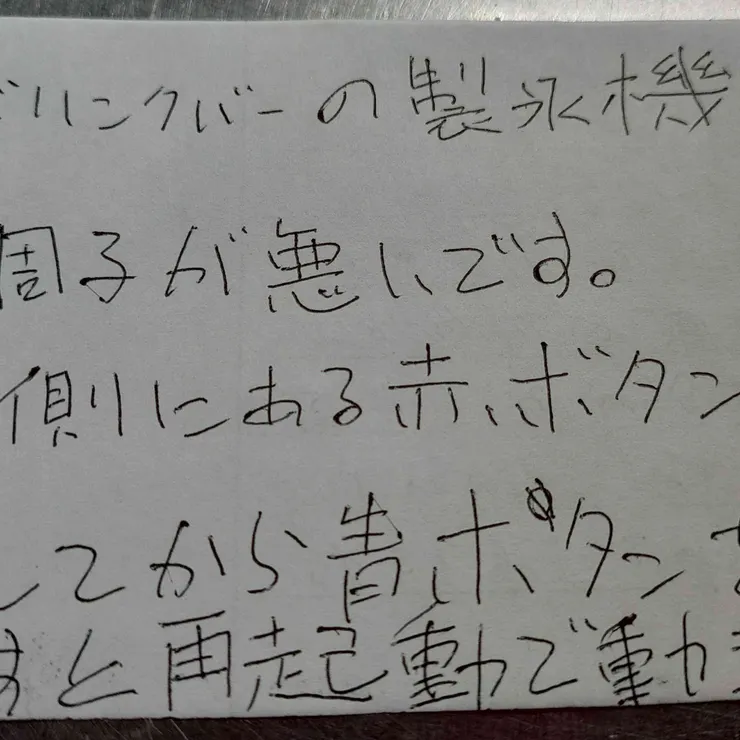 ドリンクバーの製氷機
調子が悪いです。
側にある赤いボタン
してから青いボタン
すと再起動で動か